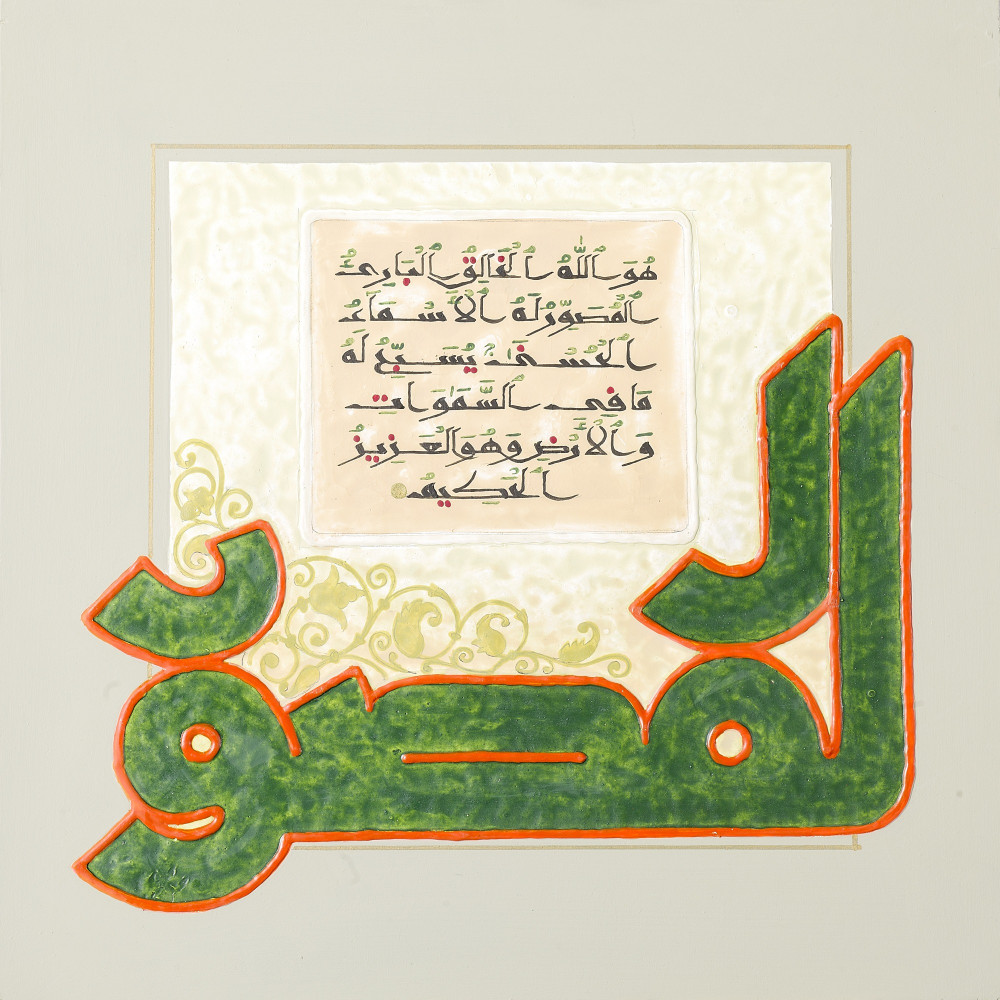 هُوَ ٱللَّهُ ٱلْخَالِقُ ٱلْبَارِئُ
ٱلْمُصَوِّرُ لَهُ ٱلْأَسْمَاءُ
ٱلْحُسْنَىٰ يُسَبِّحُ لَهُ
مَا فِي ٱلسَّمَٰوَاتِ
وَٱلْأَرْضِ وَهُوَ ٱلْعَزِيزُ
ٱلْحَكِيمُ
المصور